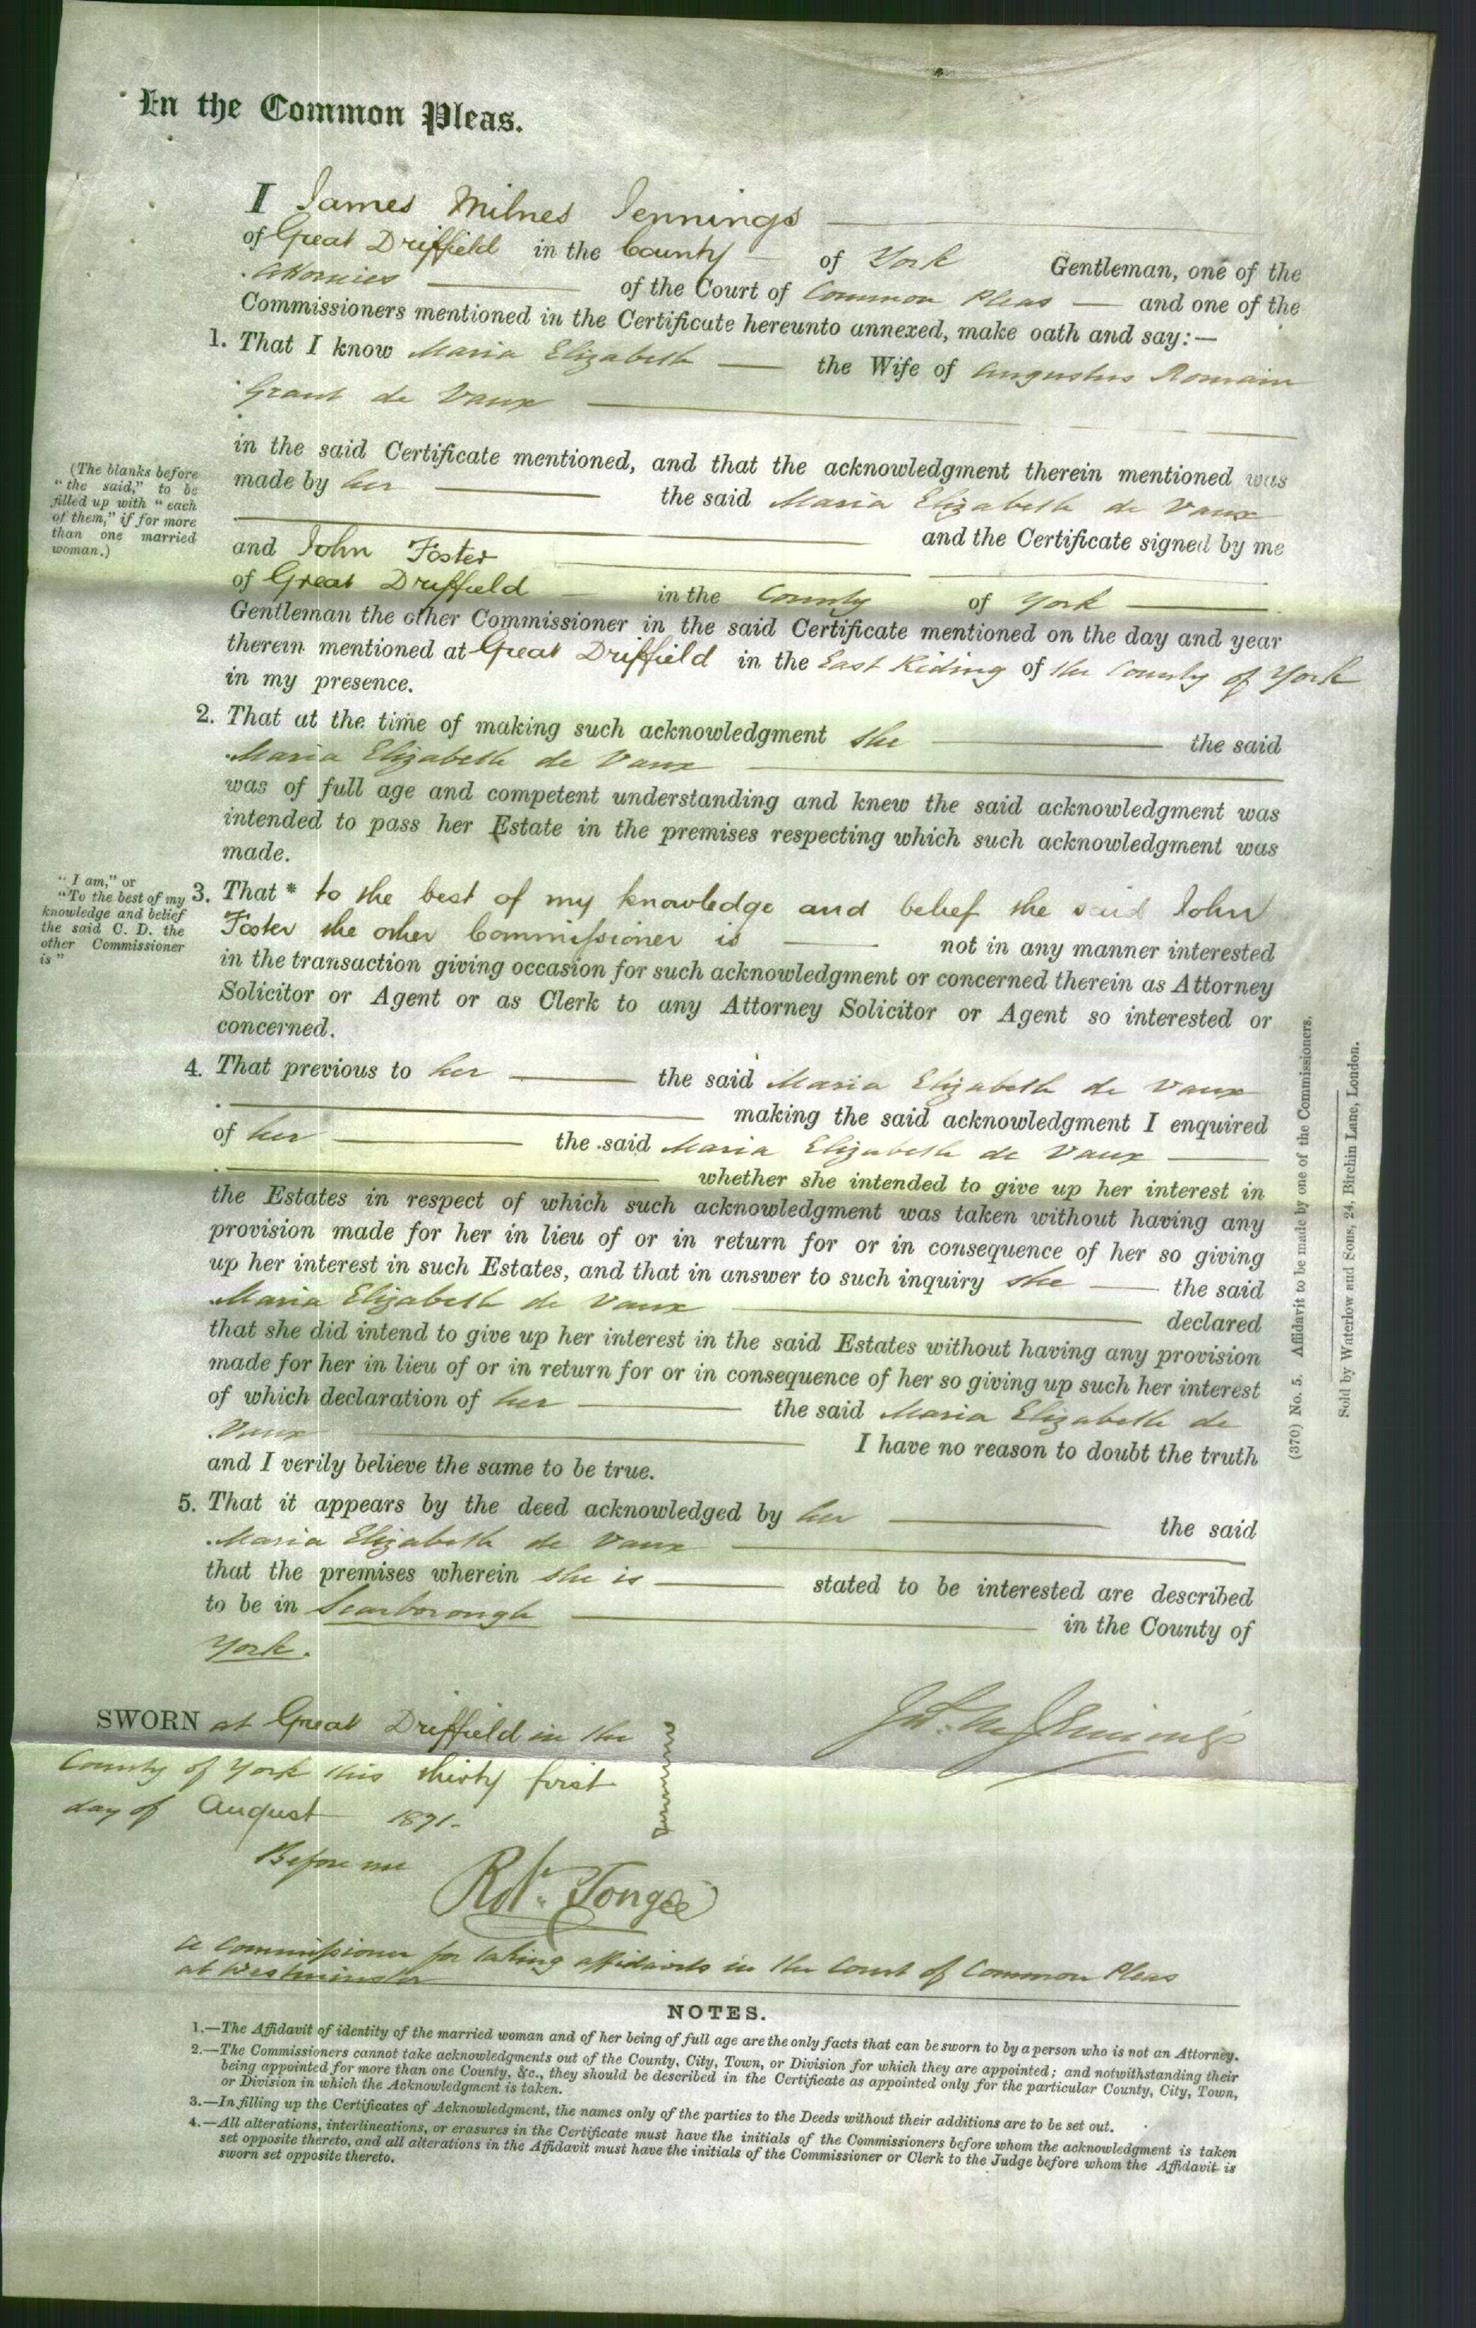 In the Common Pleas.
I James Milnes Jennings
of Great Driffield in the County of York Gentleman, one of the
Attornies of the Court of Common Pleas and one of the
Commissioners mentioned in the Certificate hereunto annexed, make oath and say:—
1. That I know Maria Elizabeth the Wife of Augustus Romain
Grant de Vaux
in the said Certificate mentioned, and that the acknowledgment therein mentioned was
made by her the said Maria Elizabeth de Vaux
and the Certificate signed by me
and John Foster
of Great Driffield in the County of York
Gentleman the other Commissioner in the said Certificate mentioned on the day and year
therein mentioned at Great Driffield in the East Riding of the County of York
in my presence.
(The blanks before
"the said," to be
filled up with "each
of them," if for more
than one married
woman.)
2. That at the time of making such acknowledgment she the said
Maria Elizabeth de Vaux
was of full age and competent understanding and knew the said acknowledgment was
intended to pass her Estate in the premises respecting which such acknowledgment was
made.
"I am," or
"To the best of my
knowledge and belief
the said C. D. the
other Commissioner
is"
3. That * to the best of my knowledge and belief the said John
Foster the other Commissioner is not in any manner interested
in the transaction giving occasion for such acknowledgment or concerned therein as Attorney
Solicitor or Agent or as Clerk to any Attorney Solicitor or Agent so interested or
concerned.
4. That previous to her the said Maria Elizabeth de Vaux
making the said acknowledgment I enquired
of her the said Maria Elizabeth de Vaux
whether she intended to give up her interest in
the Estates in respect of which such acknowledgment was taken without having any
provision made for her in lieu of or in return for or in consequence of her so giving
up her interest in such Estates, and that in answer to such inquiry she the said
Maria Elizabeth de Vaux declared
that she did intend to give up her interest in the said Estates without having any provision
made for her in lieu of or in return for or in consequence of her so giving up such her interest
of which declaration of her the said Maria Elizabeth de
Vaux I have no reason to doubt the truth
and I verily believe the same to be true.
5. That it appears by the deed acknowledged by her the said
Maria Elizabeth de Vaux
that the premises wherein she is stated to be interested are described
to be in Scarborough in the County of
York.
(370) No. 5. Affidavit to be made by one of the Commissioners.
Sold by Waterlow and Sons, 24, Birchin Lane, London.
SWORN at Great Driffield in the
County of York this thirty first
day of August 1871.
Jas. M. Jennings
Before me
Robt. Tonge
a Commissioner for taking affidavits in the Court of Common Pleas
at Westminster
NOTES.
1.—The Affidavit of identity of the married woman and of her being of full age are the only facts that can be sworn to by a person who is not an Attorney.
2.—The Commissioners cannot take acknowledgments out of the County, City, Town, or Division for which they are appointed; and notwithstanding their
being appointed for more than one County, &c., they should be described in the Certificate as appointed only for the particular County, City, Town,
or Division in which the Acknowledgment is taken.
3.—In filling up the Certificates of Acknowledgment, the names only of the parties to the Deeds without their additions are to be set out.
4.—All alterations, interlineations, or erasures in the Certificate must have the initials of the Commissioners before whom the acknowledgment is taken
set opposite thereto, and all alterations in the Affidavit must have the initials of the Commissioner or Clerk to the Judge before whom the Affidavit is
sworn set opposite thereto.